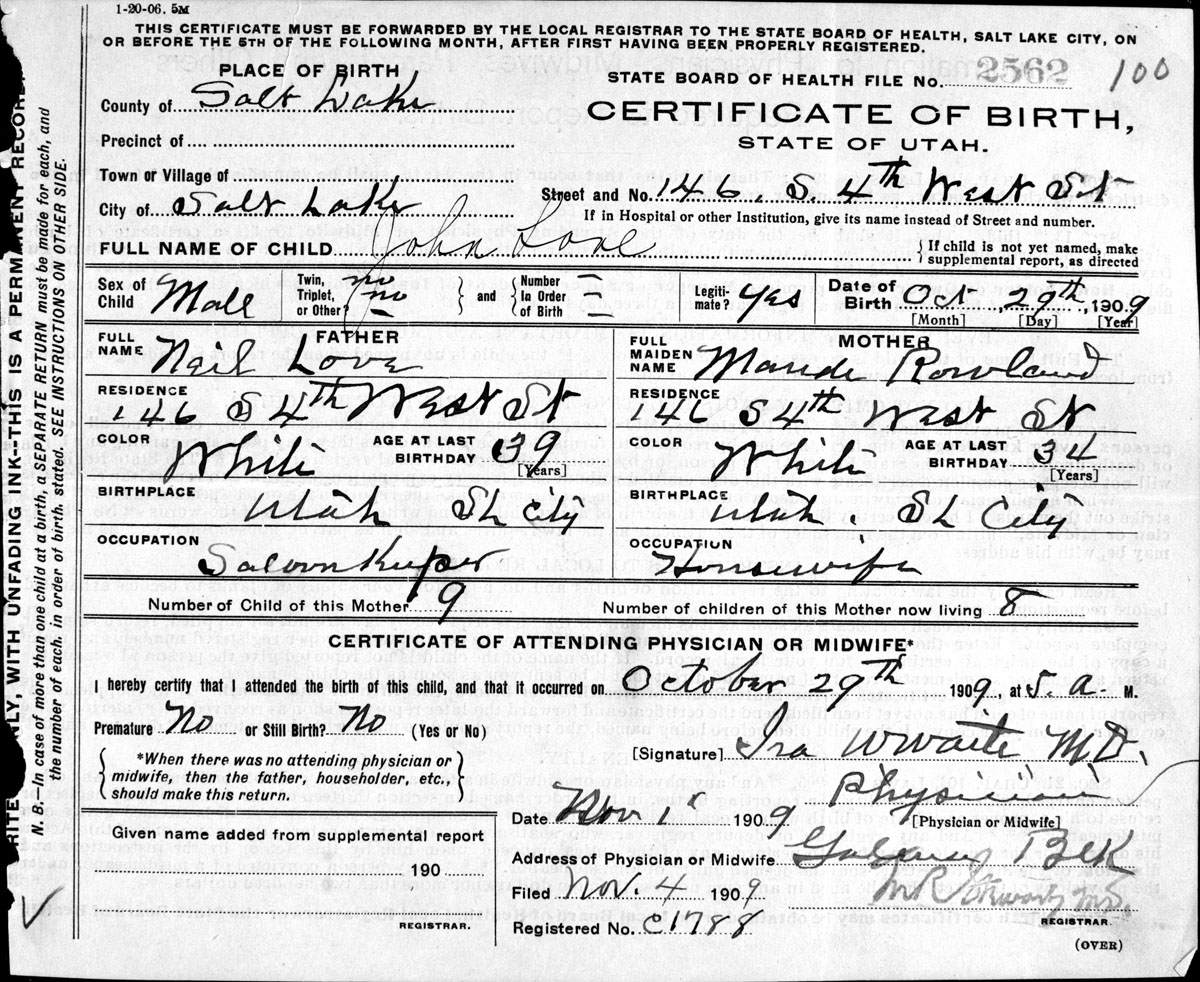 1-20-06. 5M
THIS CERTIFICATE MUST BE FORWARDED BY THE LOCAL REGISTRAR TO THE STATE BOARD OF HEALTH, SALT LAKE CITY, ON
OR BEFORE THE 5TH OF THE FOLLOWING MONTH, AFTER FIRST HAVING BEEN PROPERLY REGISTERED.
PLACE OF BIRTH
STATE BOARD OF HEALTH FILE No. 2562 100
County of Salt Lake
CERTIFICATE OF BIRTH,
STATE OF UTAH.
Precinct of
Town or Village of
Street and No. 146 S. 4th West St
City of Salt Lake
If in Hospital or other Institution, give its name instead of Street and number.
FULL NAME OF CHILD John Love
If child is not yet named, make
supplemental report, as directed
Sex of Child Male
Twin, Triplet, or Other? no
and Number In Order of Birth
Legiti- mate? Yes
Date of Birth Oct 29th, 1909
[Month] [Day] [Year]
FATHER
FULL NAME Neil Love
RESIDENCE
146 S 4th West St
COLOR White
AGE AT LAST BIRTHDAY 39
[Years]
BIRTHPLACE
Utah SL City
OCCUPATION
Saloon Keeper
MOTHER
FULL MAIDEN NAME Maude Rowland
RESIDENCE
146 S 4th West St
COLOR White
AGE AT LAST BIRTHDAY 34
[Years]
BIRTHPLACE
Utah. SL City
OCCUPATION
Housewife
Number of Child of this Mother 9
Number of children of this Mother now living 8
CERTIFICATE OF ATTENDING PHYSICIAN OR MIDWIFE*
I hereby certify that I attended the birth of this child, and that it occurred on October 29th 1909, at 5. a. M.
Premature No or Still Birth? No (Yes or No)
*When there was no attending physician or
midwife, then the father, householder, etc.,
should make this return.
[Signature] Ira W Waite MD.
Physician
[Physician or Midwife]
Date Nov 1 1909
Given name added from supplemental report
190
REGISTRAR.
Address of Physician or Midwife Blk
Filed Nov. 4 1909
REGISTRAR.
Registered No. C1788
(OVER)
WRITE ONLY, WITH UNFADING INK—THIS IS A PERMANENT RECORD
N. B.—In case of more than one child at a birth, a SEPARATE RETURN must be made for each, and
the number of each, in order of birth, stated. SEE INSTRUCTIONS ON OTHER SIDE.